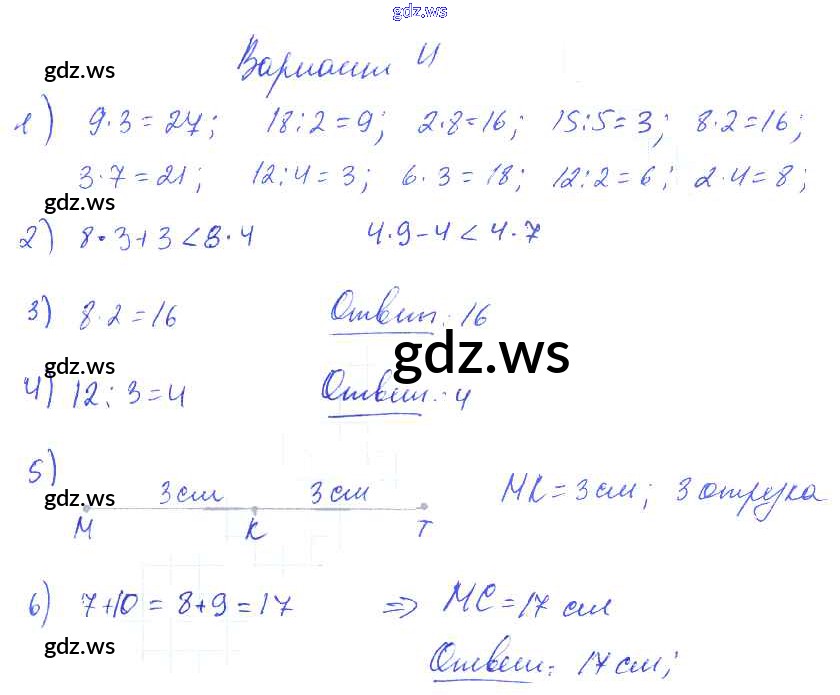 gdz.ws
Вариант 4
gdz.ws
1) 9·3=27; 18:2=9; 2·8=16; 15:5=3; 8·2=16;
3·7=21; 12:4=3; 6·3=18; 12:2=6; 2·4=8;
gdz.ws
2) 8·3+3<8·4 4·9-4<4·7
3) 8·2=16 Ответ: 16
gdz.ws
gdz.ws
4) 12:3=4 Ответ: 4
5)
3 см 3 см MK=3 см; 3 отрезка
gdz.ws
M K T
6) 7+10=8+9=17 => MC=17 см
gdz.ws
Ответ: 17 см;
gdz.ws